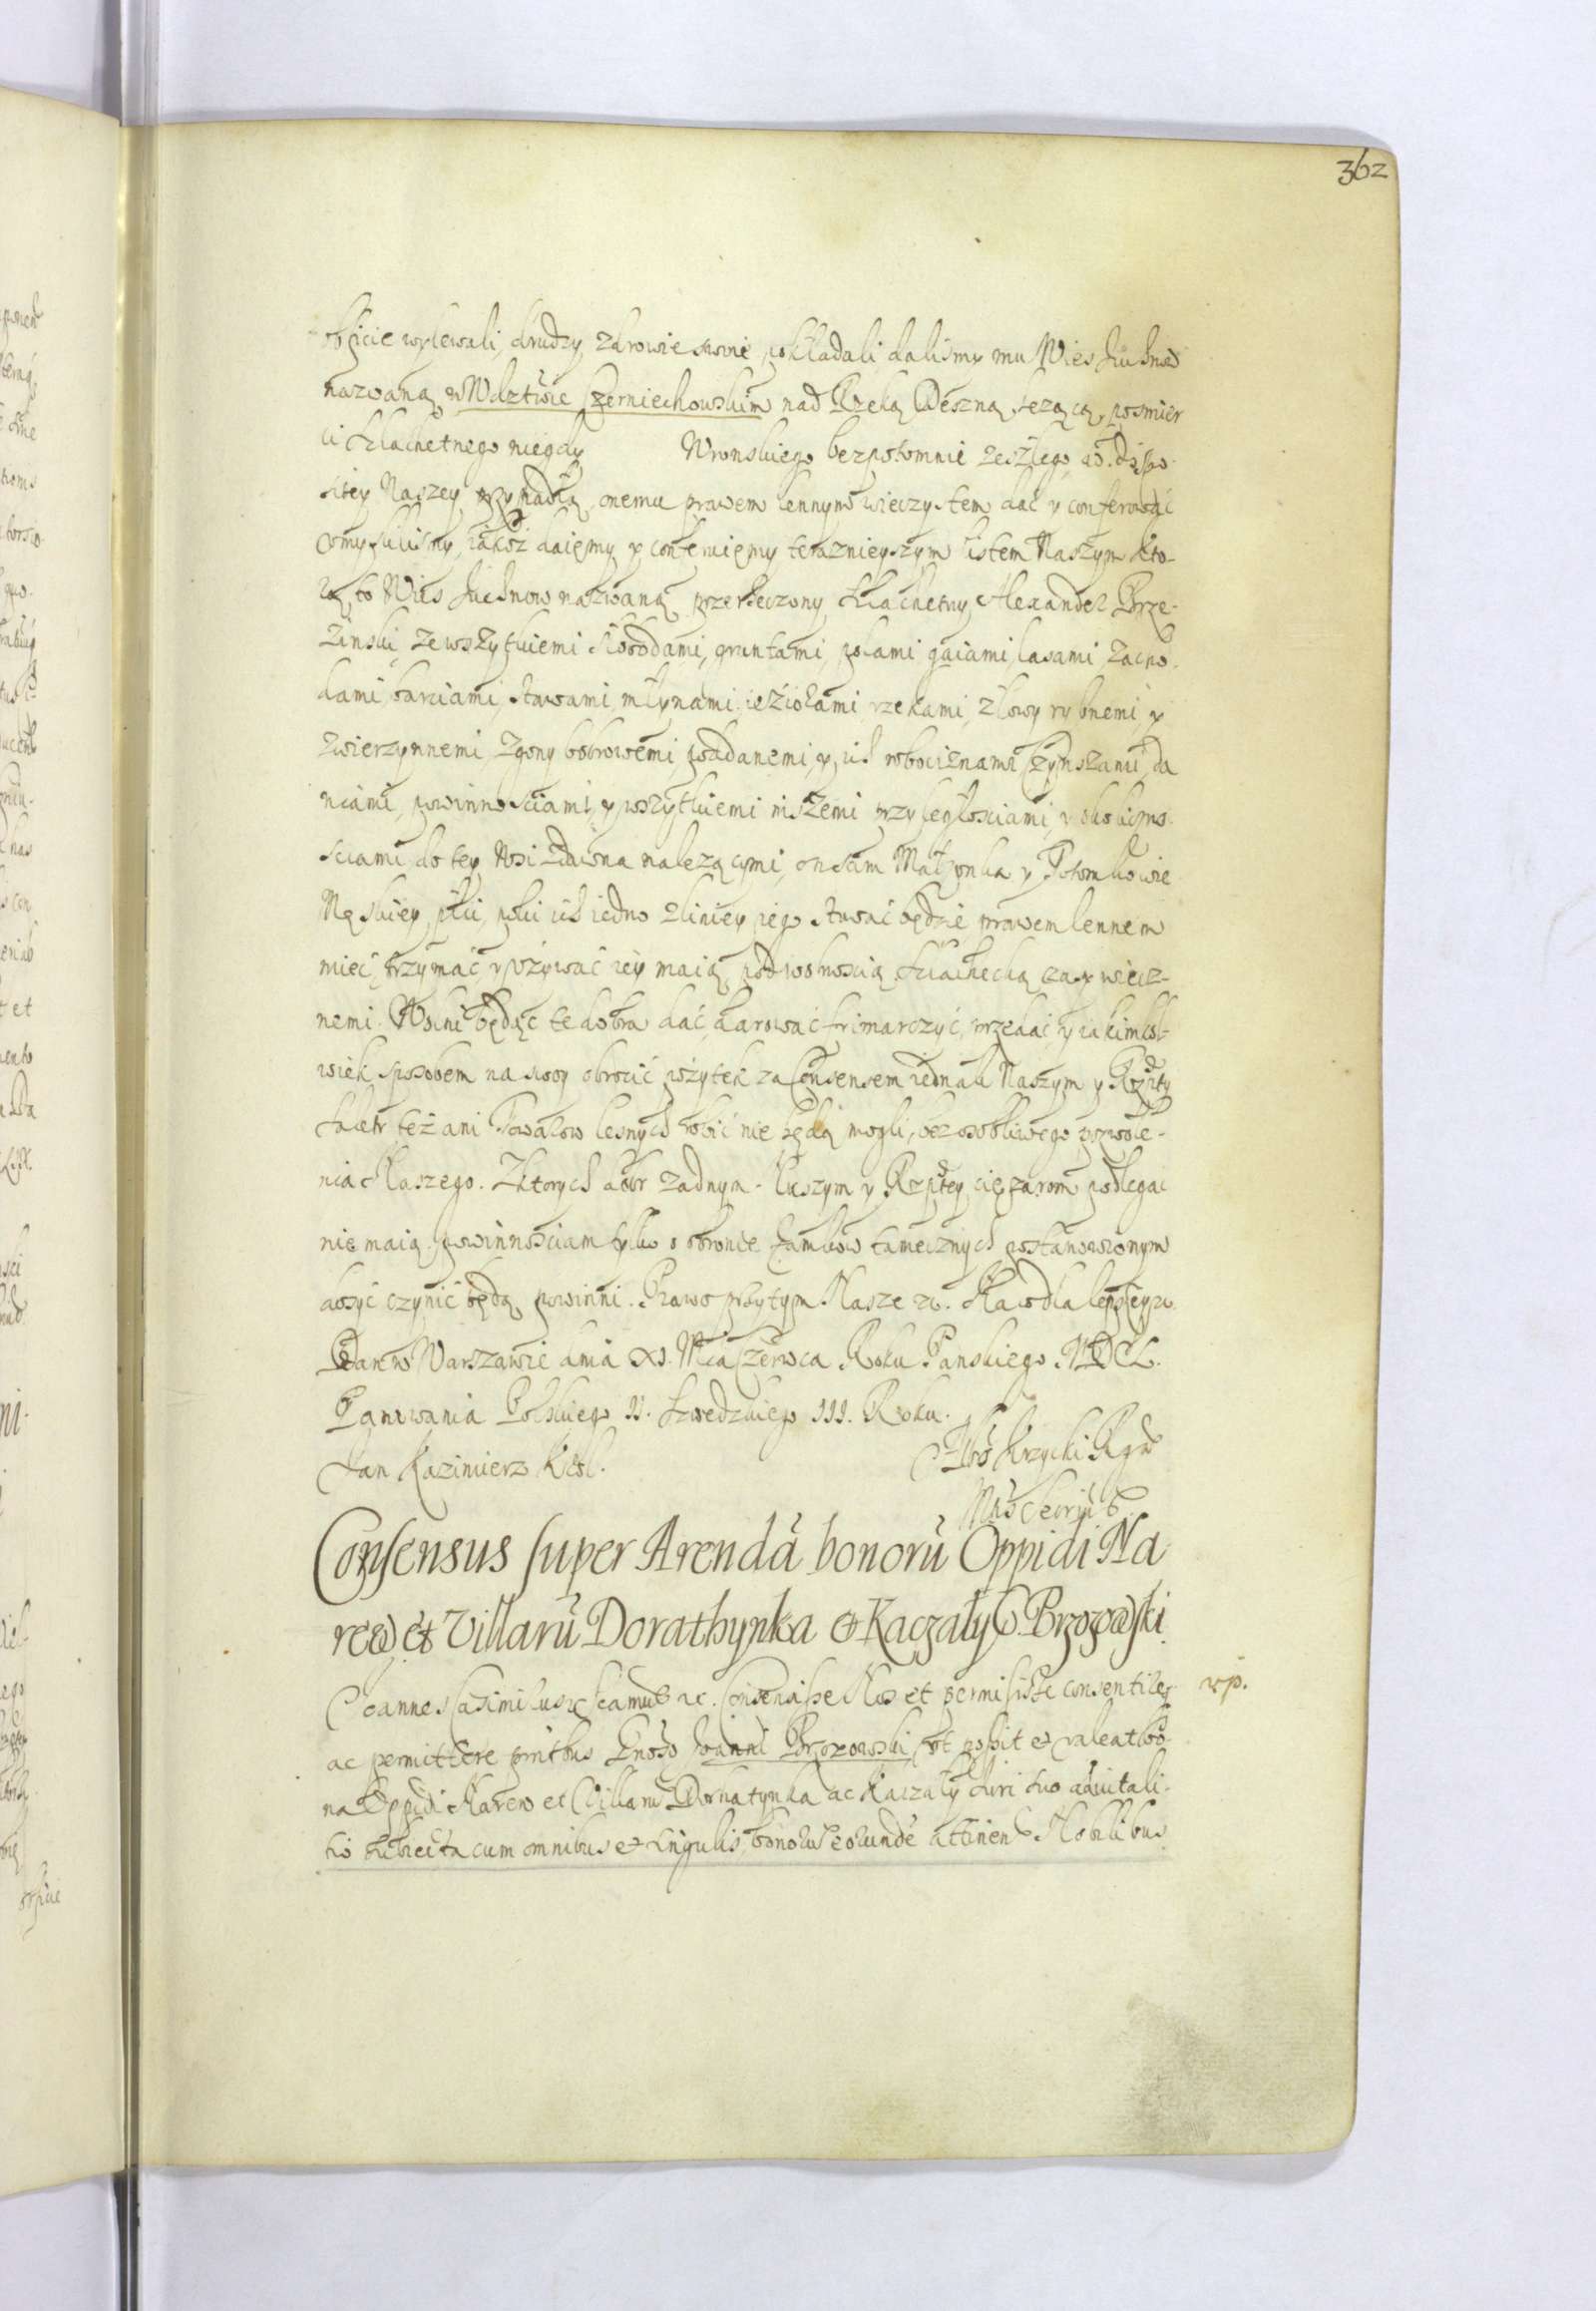 362
obficie wylewali, drudzy zdrowie swoie pokładali dalismy mu Wies
nazwaną w Wdztwie Czerniechowskim nad Rzeką Deszną lezącą, posmier
ci Szlachetnego niegdy Wronskiego bezpotomnie zeszłego ad dispo-
sitey Naszey przypadłą, onemu prawem lennym wieczystem dać y conferować
umyslilismy, iakoż daięmy y conferuięmy terazniejszym listem Naszym kto-
rą to Wies nazwaną przerzeczony Szlachetny Alexander Brze-
zinski ze wszytkiemi Słobodami, gruntami, polami gaiami, lasami, zacho-
dami barciami, stawami, młynami ieziorami rzekami, złowy rybnemi, y
zwierzynnemi, zgony bobrowemi, poddanemi, y ich robociznami Czynszami, da
niami, powinnosciami, y wszytkiemi inszemi przyległosciami, y okolicznо-
sciami do tey Wsi zdawna należącymi, on sam Małzonka y Potomkowie
Męskiey płci, poki ich iedno z liniey iego stawać będzie prawem lennem
mieć, trzymać y używać iey maią, pod wolnoscią szlachecką czasy wiecz-
nemi. Wolni będąc te dobra dać, darować frimarczyć, przedać, y iakimkol-
wiek sposobem na swoy obrocić pożytek za Consensem iednak Naszym y Rzptey
Saletr też ani Towarow lesnych robić nie będą mogli, bez osobliwego pozwole-
nia Naszego. Z ktorych dobr żadnym Naszym y Rzptey ciężarom podlegac
nie maią powinnosciam tylko o obronie Zamkow tamecznych postanowionym
dosyć czynić będą powinni. Prawo przytym Nasze &c. Na co dla lepszey &c.
Dan w Warszawie dnia XV. Mca Czerwca Roku Panskiego MDCL.
Panowania Polskiego II. Szwedzkiego III. Roku.
Jan Kazimierz Krol. Krzycki
Consensus super Arendā bonorū Oppidi Na
rew et Villarū Dorathynka et Kaczały G. Brzozowski
Joannes Casimirus &c. Significamus &c. Consensisse Nos et permisisse consentireq
ac permittere pntibus Gnoso Joanni Brzozowski, vt possit et valeat bo-
na Oppidi Narew et Villarū Dorhatynka ac Kaczały Iuri suo aduitali-
tio subiecta cum omnibus et singulis, bonorū eorunde attinen Nobilibus